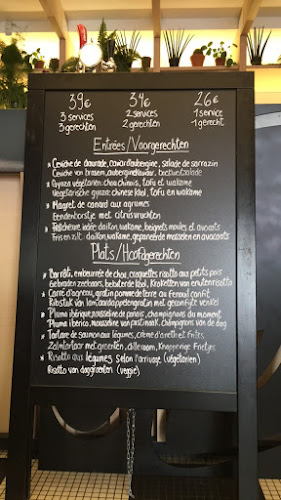 39€ 34€ 26€
3 services 2 services 1 service
3 gerechten 2 gerechten 1 gerecht
Entrées/Voorgerechten
* Ceviche de daurade, caviar d'aubergine, salade de sarrazin
Ceviche van brasem, auberginekaviar, boekweitsalade
* Gyoza végétarien, chou chinois, tofu et wakame
Vegetarische gyoza, chinese kool, tofu en wakame
* Magret de canard aux agrumes
Eendenborstje met citrusvruchten
* Fraîcheur iodée daikon, wakame, beignets moules et avocats
Fris en zilt daikon, wakame, gepaneerde mosselen en avocado's
Plats/Hoofdgerechten
* embeurrée de chou, croquettes risotto aux petits pois
Gebraden zeebaars, beboterde kool, Kroketten van erwtenrisotto
* Carré d'agneau, gratin pomme de terre au fenouil confit
Ribstuk van lam, aardappelengratin met gekonfijte venkel
* Pluma ibérique, mousseline de panais, champignons du moment
Pluma iberico, mousseline van pastinaak, champignons van de dag
* Tartare de saumon aux légumes, crème d'aneth et frites
Zalmtartaar met groenten, dilleroom, Knapperige Frietjes
* Risotto aux légumes selon l'arrivage (végétarien)
Risotto van daggroenten (veggie)